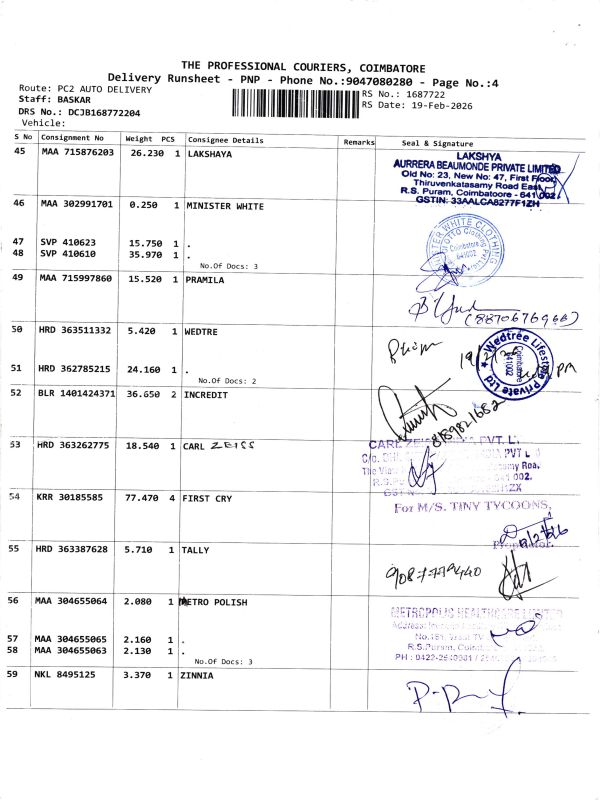 THE PROFESSIONAL COURIERS, COIMBATORE
Delivery Runsheet - PNP - Phone No.:9047080280 - Page No.:4
Route: PC2 AUTO DELIVERY
RS No.: 1687722
Staff: BASKAR
RS Date: 19-Feb-2026
DRS No.: DCJB168772204
Vehicle:
S No Consignment No Weight PCS Consignee Details Remarks Seal & Signature
45 MAA 715876203 26.230 1 LAKSHAYA
LAKSHYA
AURRERA BEAUMONDE PRIVATE LIMITED
Old No: 23, New No: 47, First Floor,
Thiruvenkatasamy Road East,
R.S. Puram, Coimbatoore - 641 002.
GSTIN: 33AALCA8277F1ZH
46 MAA 302991701 0.250 1 MINISTER WHITE
47 SVP 410623 15.750 1 .
48 SVP 410610 35.970 1 .
No.Of Docs: 3
MINISTER WHITE CLOTHING
Coimbatore
641002
49 MAA 715997860 15.520 1 PRAMILA
(8870676966)
50 HRD 363511332 5.420 1 WEDTRE
51 HRD 362785215 24.160 1 .
No.Of Docs: 2
Wedtree Lifestyle Private Ltd
Coimbatore
641002
52 BLR 1401424371 36.650 2 INCREDIT
8189821682
53 HRD 363262775 18.540 1 CARL ZEISS
54 KRR 30185585 77.470 4 FIRST CRY
For M/S. TINY TYCOONS,
Proprietor.
55 HRD 363387628 5.710 1 TALLY
9087779440
56 MAA 304655064 2.080 1 METRO POLISH
57 MAA 304655065 2.160 1 .
58 MAA 304655063 2.130 1 .
No.Of Docs: 3
METROPOLIS HEALTHCARE LIMITED
R.S.Puram,
59 NKL 8495125 3.370 1 ZINNIA